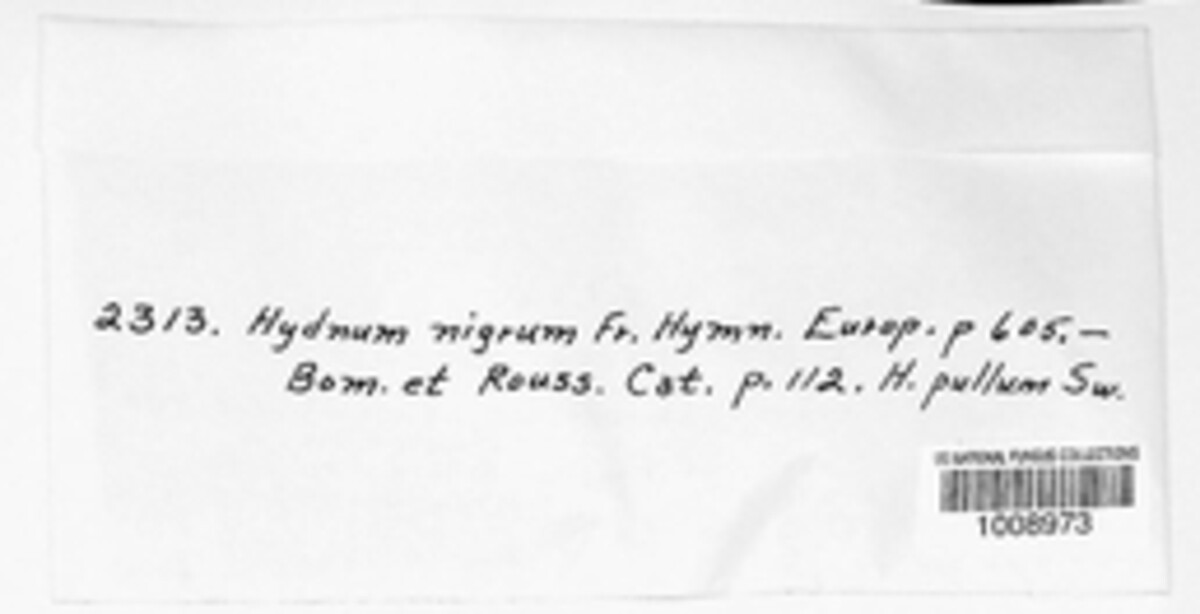 2313. Hydnum nigrum Fr. Hymn. Europ. p 605.—
Bom. et Rouss. Cat. p. 112. H. pullum Sw.
US NATIONAL FUNGUS COLLECTIONS
1008973